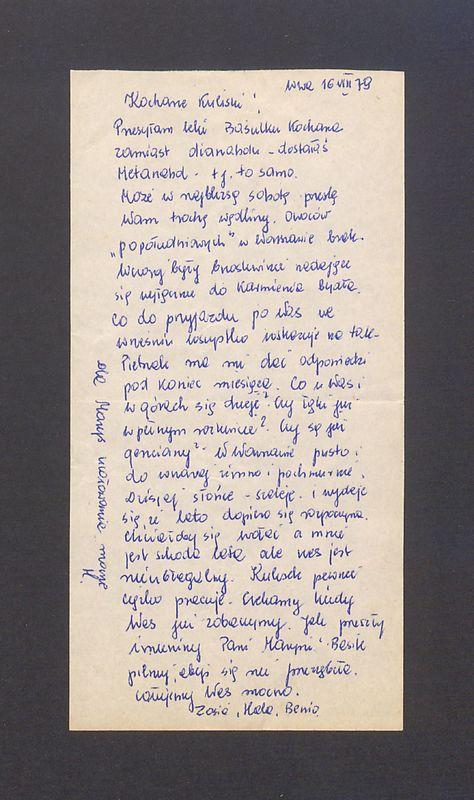 Wwa 16 VIII 79
Kochane Kuliski!
Przesyłam leki Basulku Kochana
zamiast dianabolu - dostałaś
Metanabol - tj. to samo.
Może w najbliższą sobotę prześlę
Wam trochę wędliny. Owoców
"popołudniowych" w Warszawie brak.
Wczoraj były brzoskwinie nadające
się wyłącznie do karmienia bydła.
Co do przyjazdu po Was we
wrześniu wszystko wskazuje na tak -
Pietrak ma mi dać odpowiedź
pod koniec miesiąca. Co u Was i
w górach się dzieje? Czy łąki już
w pełnym rozkwicie? Czy są już
gencjany? W Warszawie pusto i
do wczoraj zimno i pochmurnie.
Dzisiaj słońce - szaleje i wydaje
się, że lato dopiero się rozpoczyna.
Chciałoby się wołać a mnie
jest szkoda lata ale czas jest
nieubłagalny. Kulisek pewnie
ciężko pracuje. Czekamy kiedy
Was już zobaczymy. Jak przeszły
imieniny Pani Maryni? Basik
pilnuj, abyś się nie przeziębiła.
Całujemy Was mocno.
Zosia, Hala, Benio
dla Mamy ucałowania moje
H.